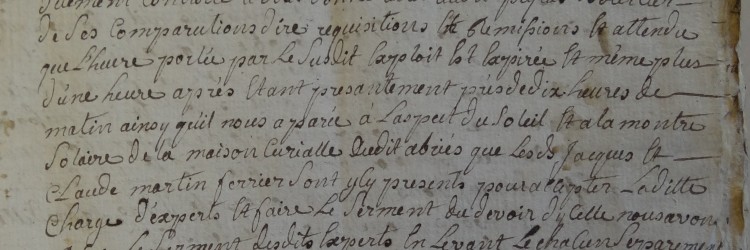 de Ses Comparutions dire requisitions Et Remissions Et attendu
que L'heure portée par Le Susdit Exploit Est Expirée Et même plus
d'une heure aprés Etant presantement prés de dix heures de
matin ainsy qu'il nous a parée à L'aspect du Soleil Et a la montre
Solaire de la maison Curialle dudit abriés que Lesds Jacques Et
Claude martin ferrier Sont yCy presents pour accepter Laditte
Charge d'Experts Et faire Le Serment du devoir d'yCelle nous avons
Le Serment desdits Experts En Levant Le chacun Separement